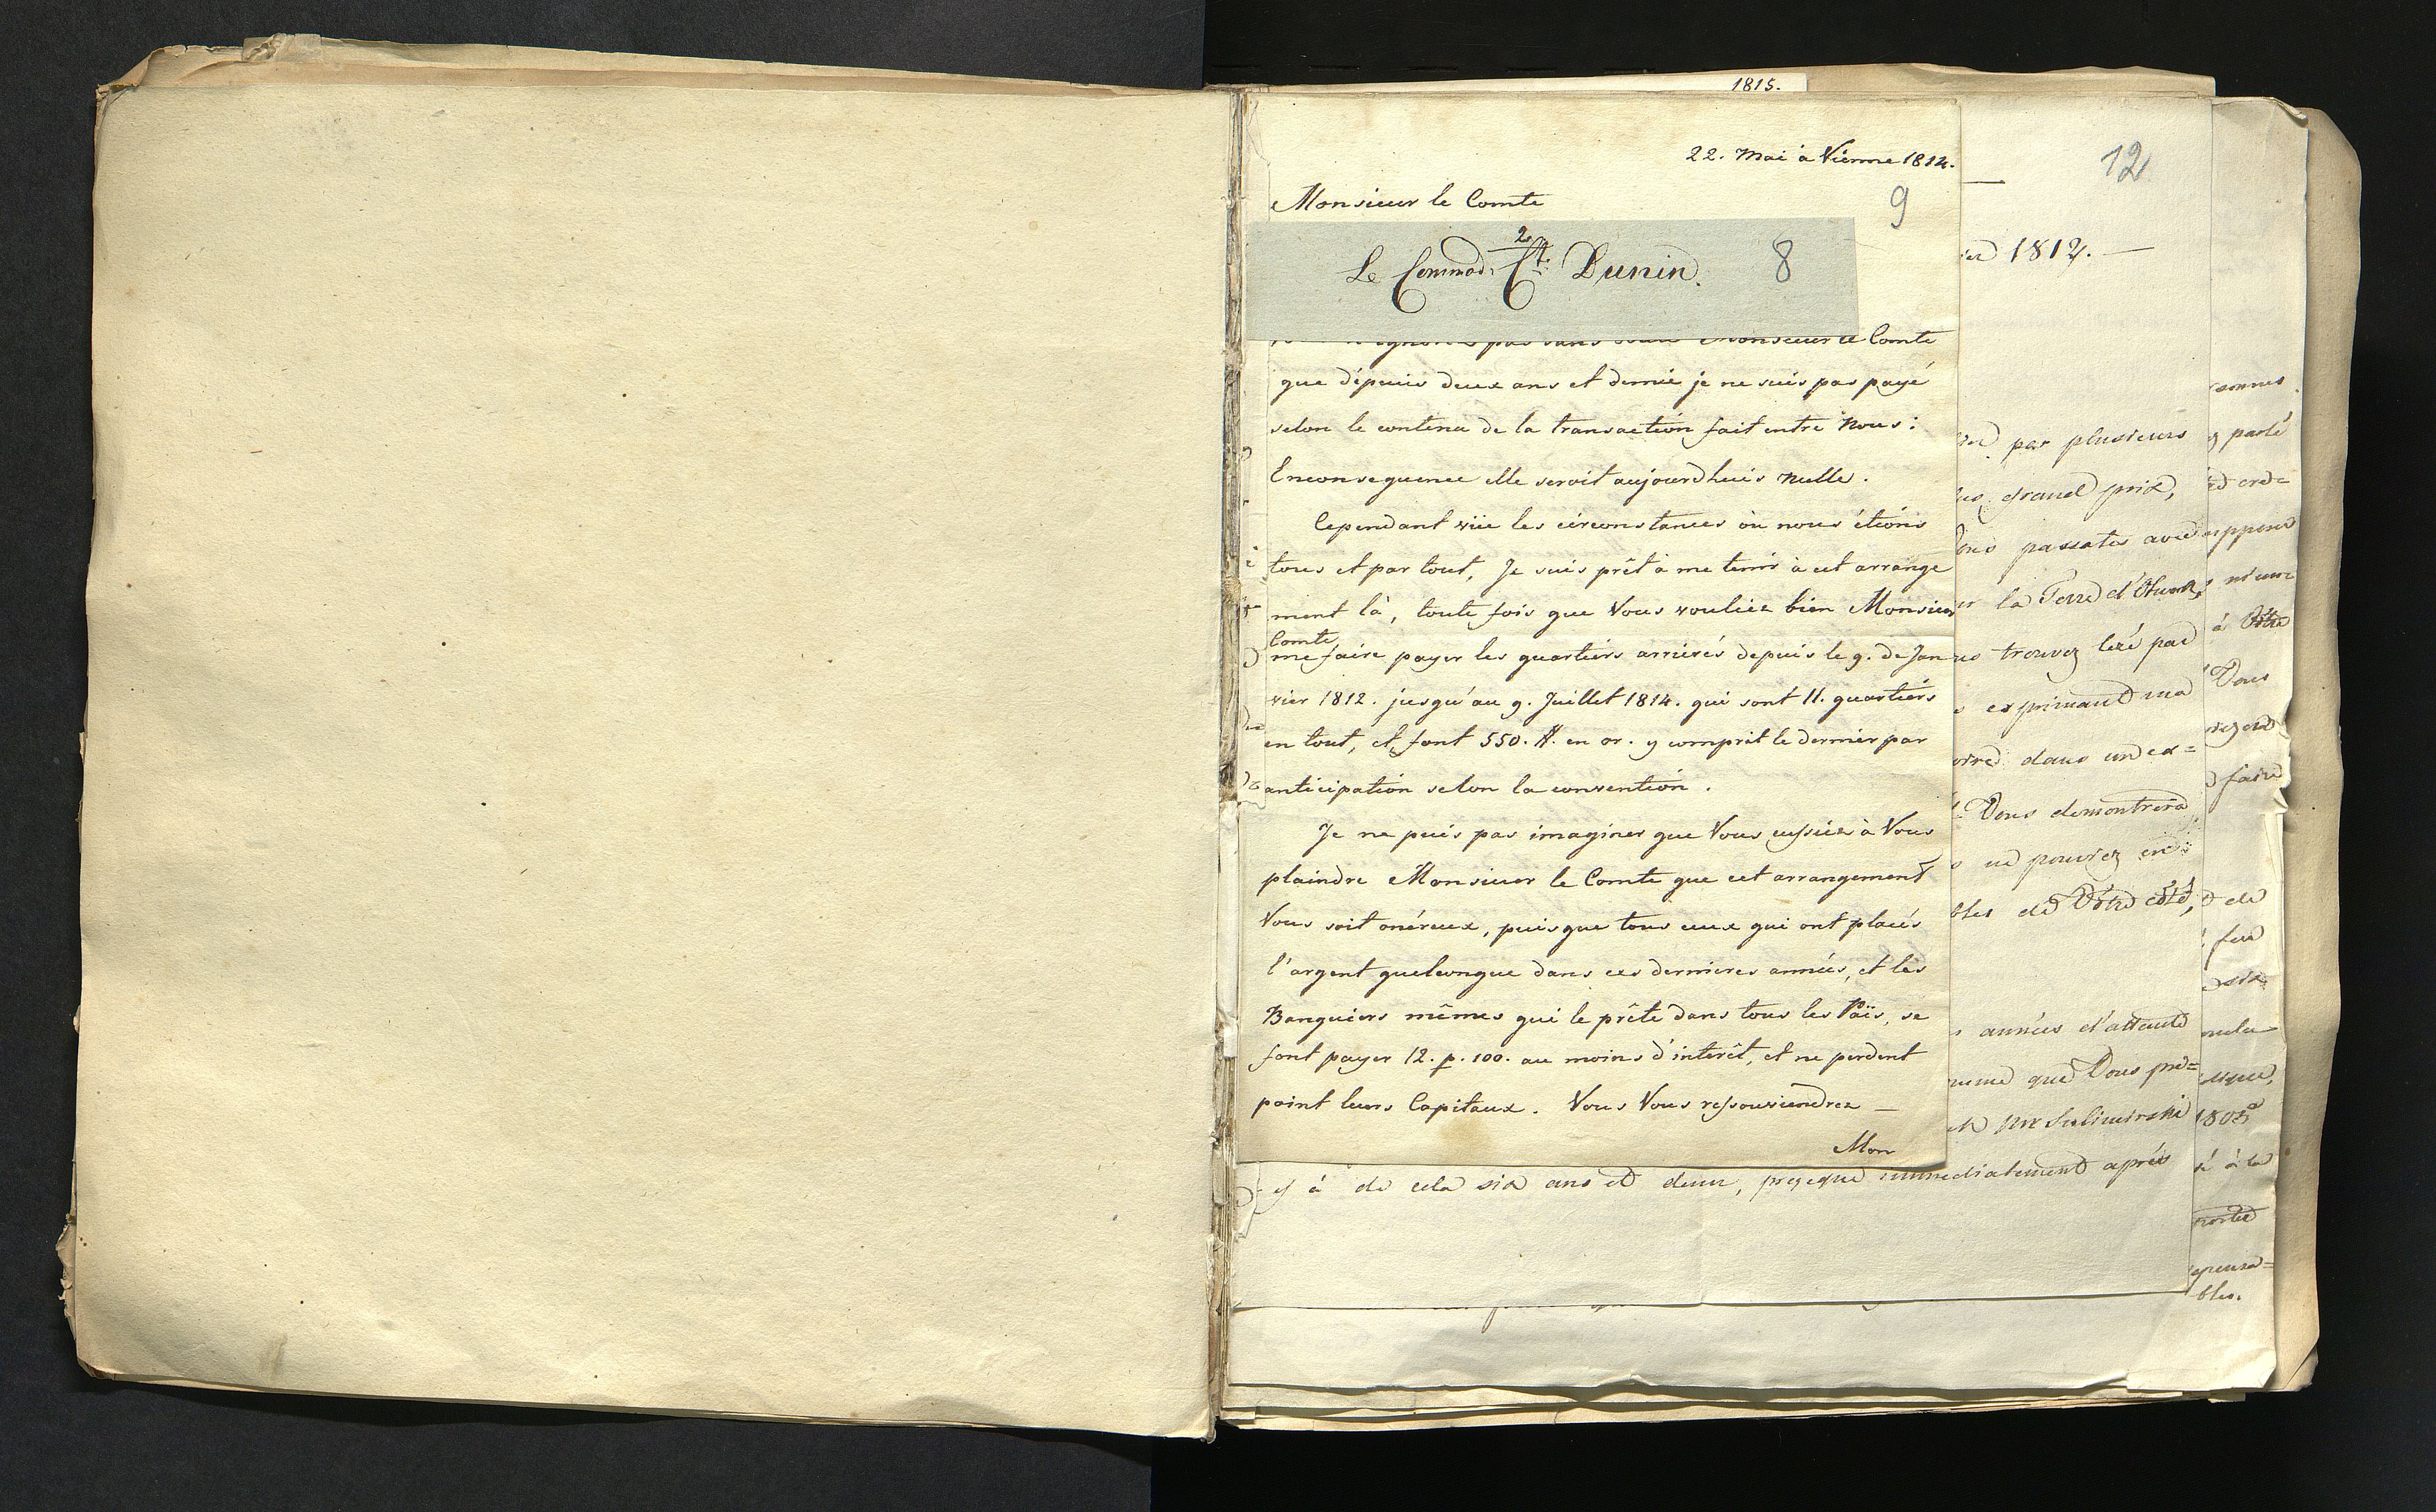 1815.
22. Mai à Vienne 1814.
Monsieur le Comte
9
2
Le Command. Ct. Dunin. 8
pas sans Monsieur le Comte
que dépuis deux ans et demie je ne suis pas payé
selon le contenu de la transaction fait entre Nous:
Enconsequence elle seroit aujourdhuis Nulle.
Cependant vüe les circonstances où nous étions
tous et par tout, Je suis prêt à me tenir à cet arrange
ment là, toute fois que Vous vouliez bien Monsieur
Comte
me faire payer les quartiers arriérés depuis le 9. de Jan
vier 1812. jusqu'au 9. Juillet 1814. qui sont 11. quartiers
en tout, et font 550. #. en or. y comprit le dernier par
anticipation selon la convention.
Je ne puis pas imaginer que Vous eussiez à Vous
plaindre Monsieur le Comte que cet arrangement
Vous soit onéreux, puisque tous ceux qui ont placés
l'argent quelconque dans ces dernieres années, et les
Banquiers mêmes qui le prête dans tous les Païs, se
font payer 12. p. 100. au moins d'interêt, et ne perdent
point leurs Capitaux. Vous Vous ressouviendrez —
Mon
12
1812. —
par plusieurs
grand prix,
passates avec
la Terre d'
trouvez lezé par
exprimant ma
dans un ex=
Vous demontrera
ne pouvez en
de Vôtre côté,
années d'attente
que Vous pre=
Mr Sulimirski
y à de cela six ans et demi, presque immediatement après
parlé
ord=
à Vôtre
Vous
faire
de
feu
six
1803
à la
bles.